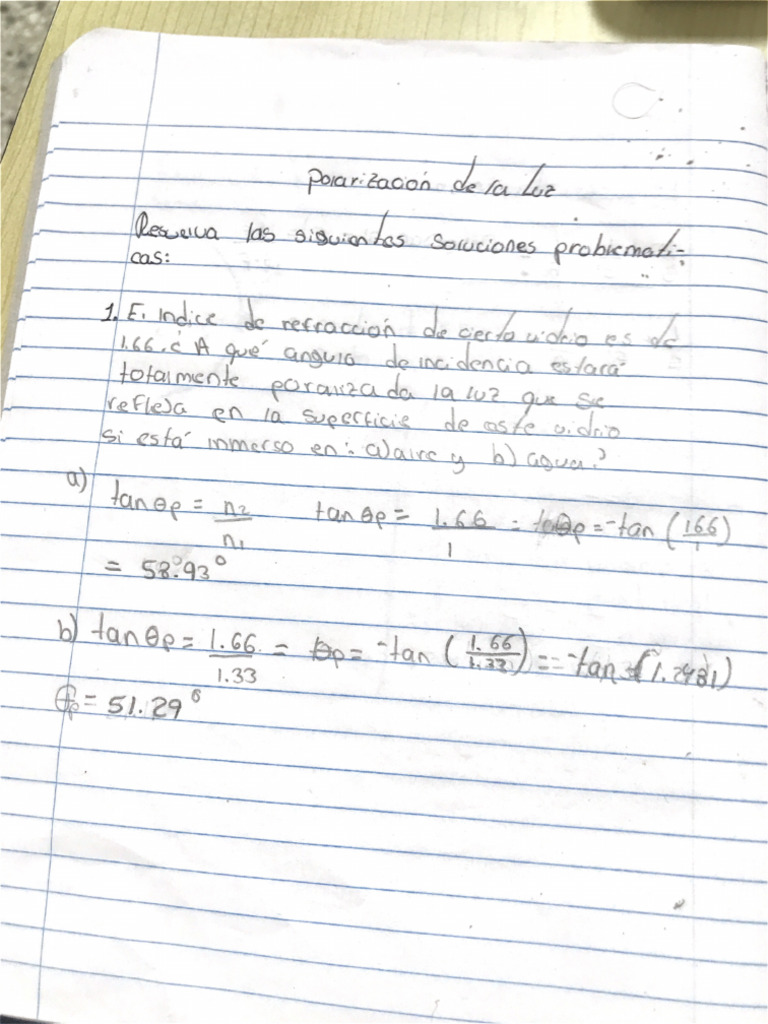 Polarización de la Luz
Resuelva las siguientes soluciones problemati-
cas:
1. El Indice de refracción de cierto vidrio es de
1.66. ¿ A qué angulo de incidencia estará
totalmente polarizada la luz que se
refleja en la superficie de este vidrio
si está inmerso en: a) aire y b) agua?
a) tan θp = n2/n1 tan θp = 1.66/1 = θp = -tan (1.66/1)
= 58.93°
b) tan θp = 1.66/1.33 = θp = -tan (1.66/1.33) = = -tan (1.2481)
θp = 51.29°